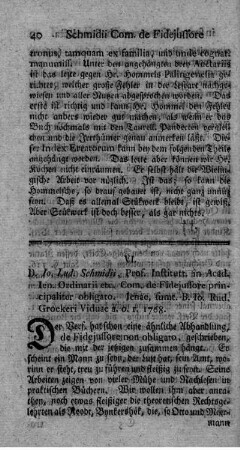 40 Schmidii Com. de Fidejussore
tronus, tamquam ex familia, und unde cognati
magnumisi. Unter den angehängten drey Auctariis
ist das lezte gegen Hr. Hommels Palingenesia ge-
richtet, welcher große Fehler in der Lesart nachge-
wiesen und aller Nutzen abgesprochen worden. Das
erste ist richtig und kann Hr. Hommel den Fehler
nicht anders wieder gut machen, als wenn er das
Buch nochmals mit den Taurell. Pandecten verglei-
chen und die Irrthümer genau anmerken läßt. Die-
ser Index Erratorum kann bey dem folgenden Theile
angehänget werden. Das lezte aber können wir Hr.
nicht einräumen. Es selbst hält die
gische Arbeit vor nuzlich. Ist das; so kann die
Hommelsche, so brauchbar sie ist, nicht ganz unnüz
seyn. Daß es allemal Stükwerk bleibt, ist gewiß.
Aber Stükwerk ist doch besser, als gar nichts.
VI.
D. Jo. Lud. Schmidii, Prof. Institutt. in Acad.
Ien. Ordinarii etc. Com. de Fidejussore prin-
cipaliter obligato. Ienae, sumt. B. Ik Rud.
Croekeri Viduae a. o. r. 1768.
Der Verf. hat schon eine ähnliche Abhandlung,
de Fidejussore non obligato, geschrieben,
die mit der jetzigen zusammen hängt. Er
scheint ein Mann zu seyn, der Lust hat, sein Amt, wor-
inn er steht, treu zu führen und fleißig zu seyn. Seine
Arbeiten zeigen von vieler Mühe und Nachlesen in
praktischen Büchern. Wir wollen ihm aber anra-
then, noch etwas fleißiger die theoretischen Rechtsge-
lehrten als Noodt, Bynkershök, die, so Otto und Meer-
mann